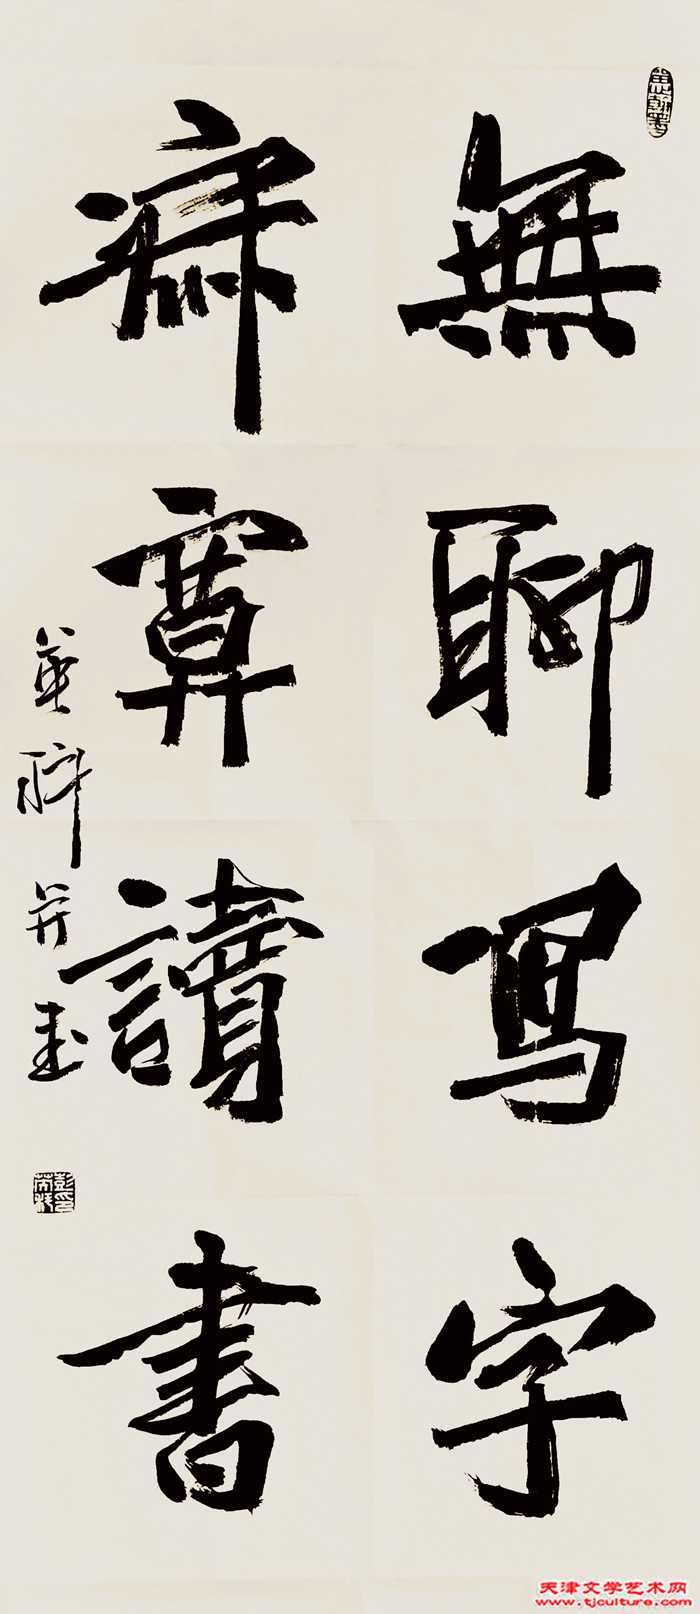 無聊写字
寂寞讀書
英科并書
彭英科印
天津文学艺术网
www.tjculture.com